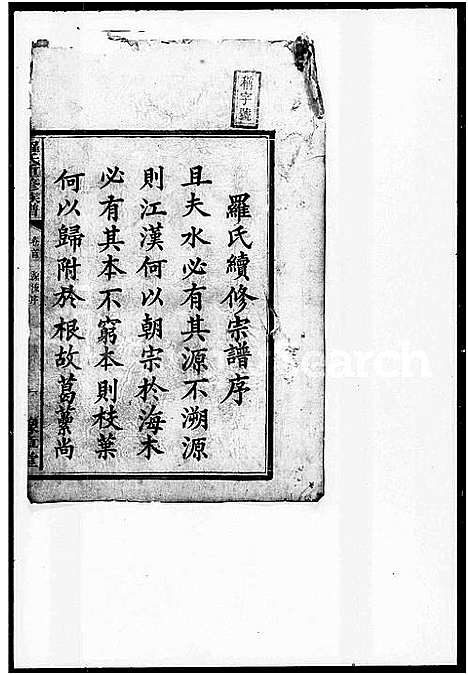 稱字號
羅氏續修宗譜序
且夫水必有其源不溯源
則江漢何以朝宗於海木
必有其本不窮本則枝葉
何以歸附於根故葛藟尚
羅氏重修族譜
卷首
earch